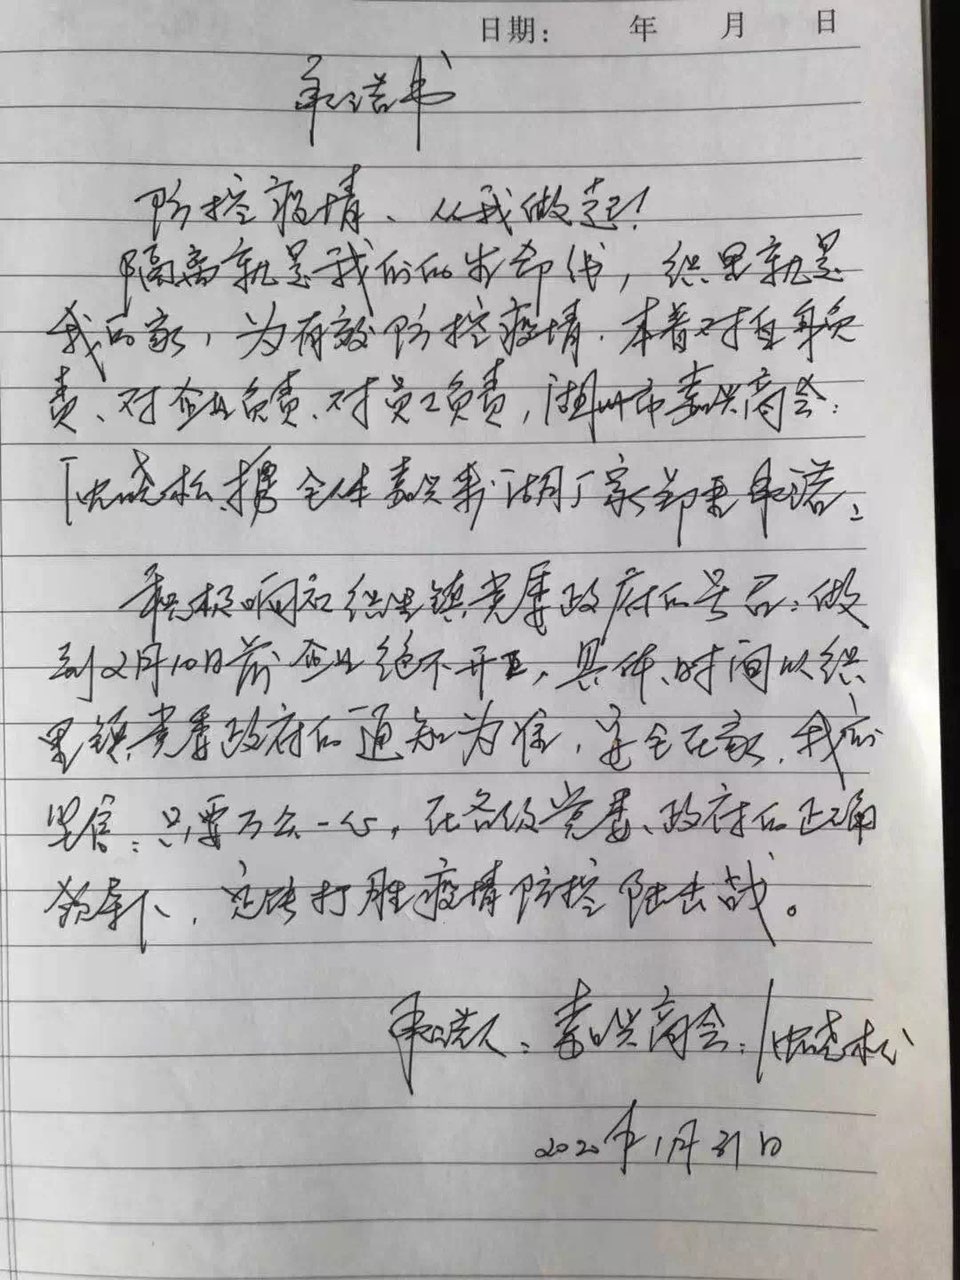 日期： 年 月 日
承诺书
防控疫情、从我做起！
隔离就是我们的责任，织里就是
我的家，为有效防控疫情．本着对自身负
责、对企业负责、对员工负责，湖州市嘉兴商会：
沈晓松携全体嘉兴在湖厂家郑重承诺：
积极响应织里镇党委政府的号召：做
到2月10日前企业绝不开工，具体时间以织
里镇党委政府的通知为准，安全在家．我们
坚信：只要万众一心，在各级党委、政府的正确
领导下，定能打胜疫情防控阻击战。
承诺人：嘉兴商会：沈晓松
2020年1月31日